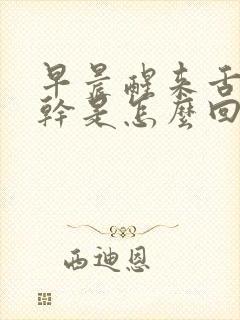 早晨醒来舌
幹是怎麼回
西迪恩